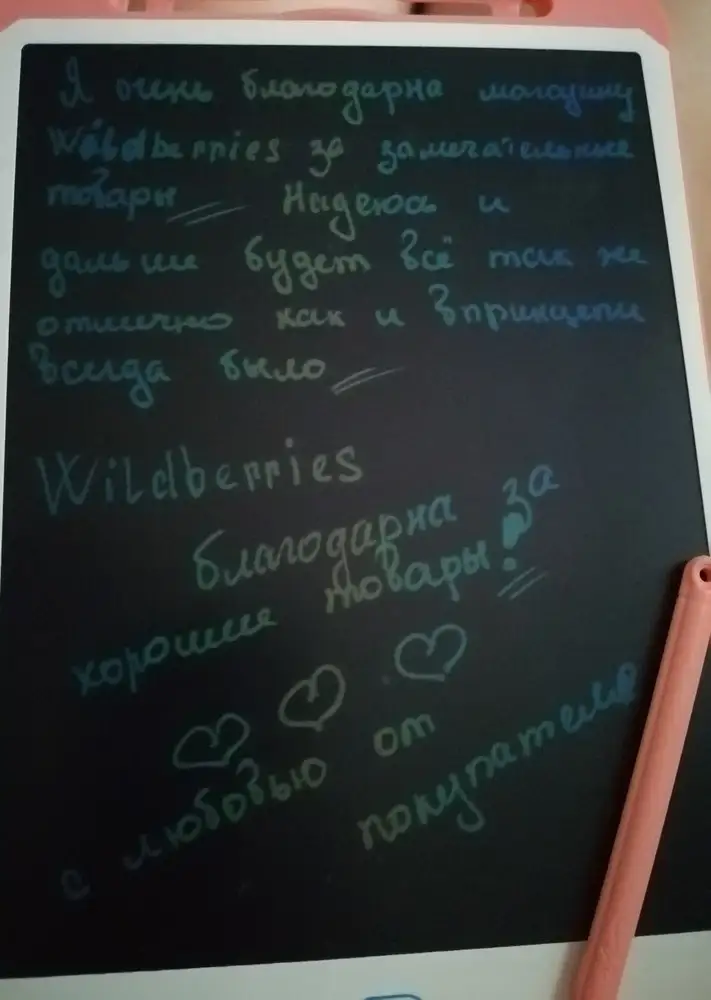 Я очень благодарна магазину
Wildberries за замечательные
товары Надеюсь и
дальше будет всё так же
отлично как и впринцепи
всегда было
Wildberries
благодарна за
хорошие товары!
с любовью от
покупателя